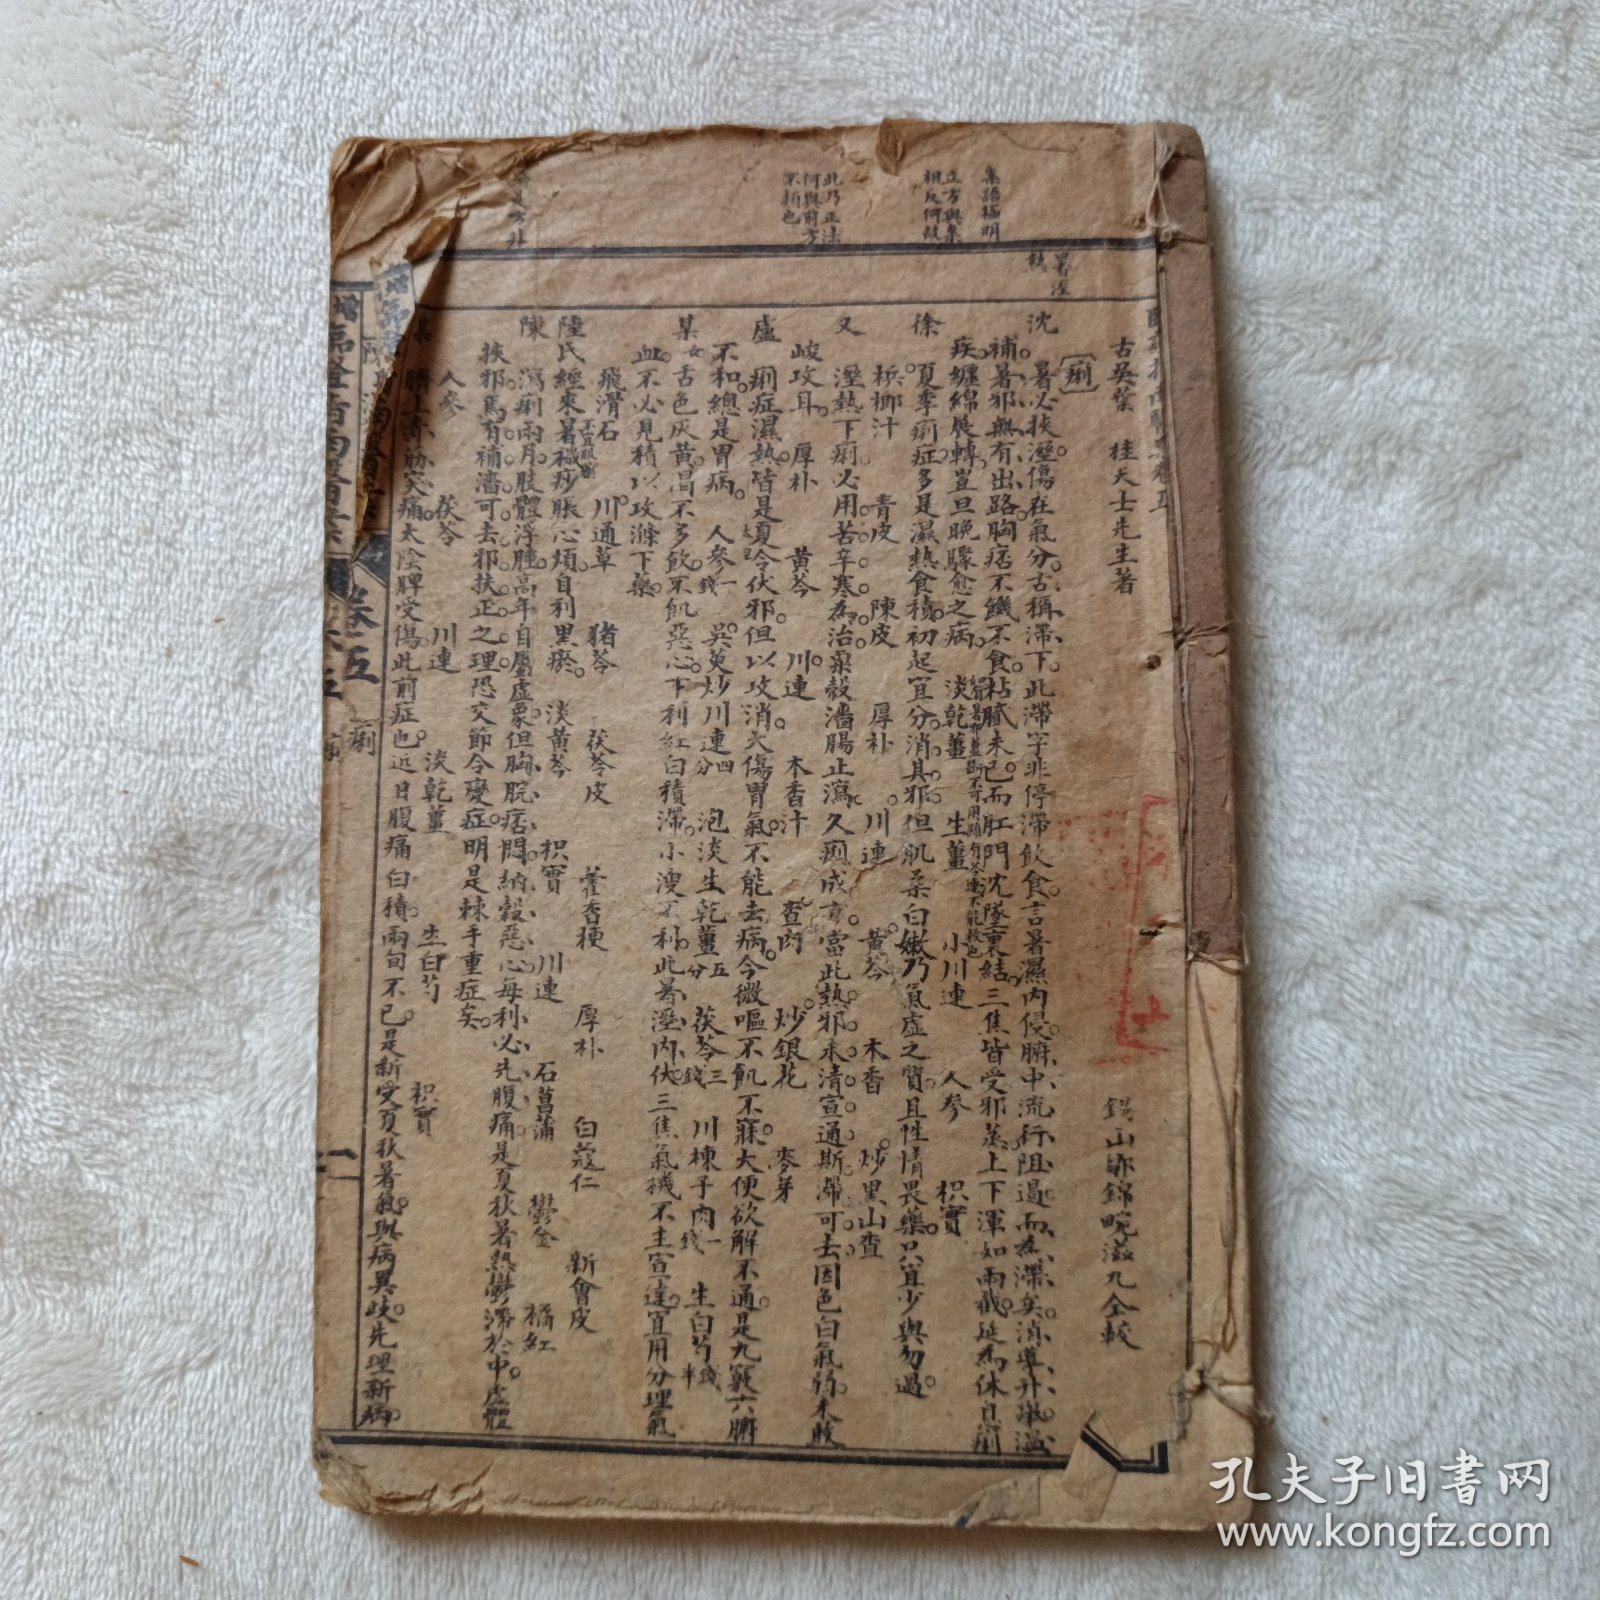 集語極明
立方與案
相反何故
此乃正法
何與前方
不類也
暑溼
熱
古吳葉　桂天士先生著　錫山
痢
沈　暑必挾溼傷在氣分古稱滯下此滯字非停滯飲食言暑濕內侵腑中流行阻遏而為滯矣消導升
補暑邪無有出路胸痞不饑不食粘膩未已而肛門沈墜裏結三焦皆受邪蒸上下渾如兩截延為休息痢
疾纏綿展轉豈旦晚驟愈之病　淡乾薑　生薑　小川連　人參　枳實
徐　夏季痢症多是濕熱食積初起宜分消其邪但肌柔白嫩乃氣虛之質且性情畏藥只宜少與勿過
檳榔汁　青皮　陳皮　厚朴　川連　黃芩　木香　炒黑山查
又　溼熱下痢必用苦辛寒為治粟殼濇腸止瀉久痢成方當此熱邪未清宣通斯滯可去因色白氣弱未敢
峻攻耳　厚朴　黃芩　川連　木香汁　查肉　炒銀花　麥芽
盧　痢症濕熱皆是夏令伏邪但以攻消大傷胃氣不能去病今微嘔不飢不寐大便欲解不通是九竅六腑
不和總是胃病　人參一錢　吳萸炒川連四分　泡淡生乾薑五分　茯苓三錢　川楝子肉一錢　生白芍錢半
某女　舌色灰黃渴不多飲不飢惡心下利紅白積滯小溲不利此暑溼內伏三焦氣機不主宣達宜用分理氣
血不必見積以攻滌下藥
飛滑石　川通草　猪苓　茯苓皮　藿香梗　厚朴　白蔻仁　新會皮
陸氏　經來暑穢痧脹心煩自利黑瘀　淡黃芩　枳實　川連　石菖蒲　鬱金　橘紅
陳　瀉痢兩月肢體浮腫高年自屬虛象但胸脘痞悶納穀惡心每利必先腹痛是夏秋暑熱鬱滯於中虛體
挾邪焉有補濇可去邪扶正之理恐交節令變症明是棘手重症矣
人參　茯苓　川連　淡乾薑　生白芍　枳實
臍上青筋突痛太陰脾受傷此前症也近日腹痛白積兩旬不已是新受夏秋暑氣與病異歧先理新病
卷五
痢
一
孔夫子旧书网
www.kongfz.com